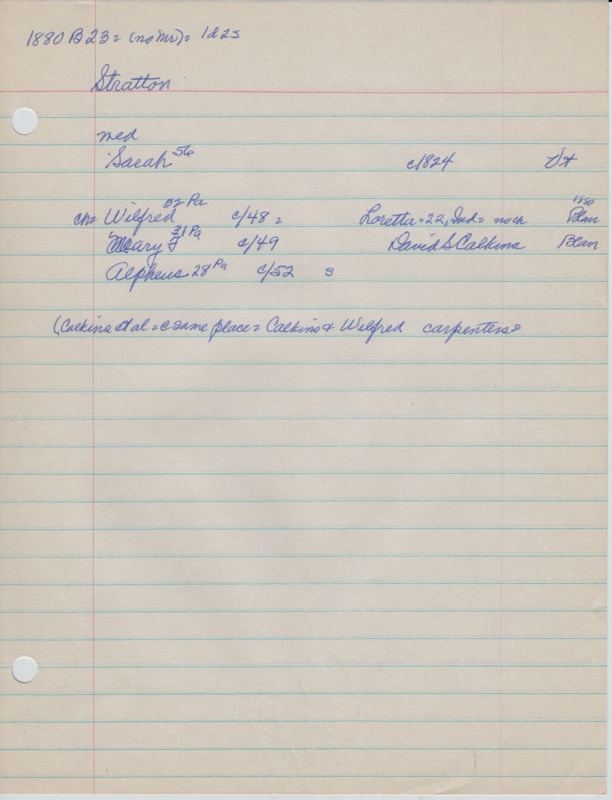 1880 B23 = (no mr) = 1d2s
Stratton
med
Sarah 56 c1824 Vt
ch = Wilfred 32 Pa c/48 = Loretta = 22, Ind = no ch 1880 Blan
Mary F 31 Pa c/49 David S Calkins Blan
Alpheus 28 Pa c/52 s
(Calkins et al = @ same place = Calkins & Wilfred carpenters =